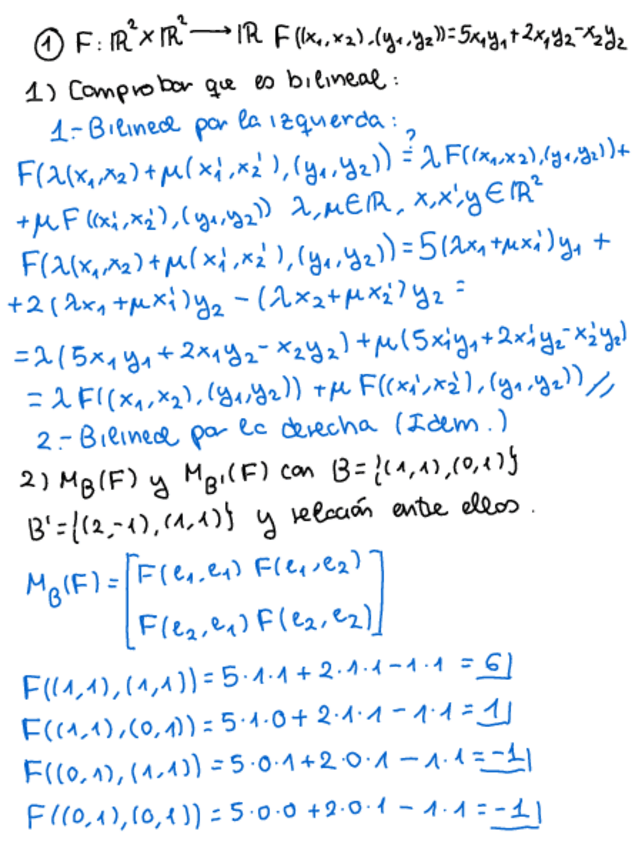 ① F: ℝ² × ℝ² → ℝ F((x₁,x₂),(y₁,y₂))=5x₁y₁+2x₁y₂-x₂y₂
1) Comprobar que es bilineal:
1.- Bilineal por la izquierda:
F(λ(x₁,x₂)+μ(x₁',x₂'),(y₁,y₂)) =? λF((x₁,x₂),(y₁,y₂))+
+μF((x₁',x₂'),(y₁,y₂)) λ,μ∈ℝ, x,x',y∈ℝ²
F(λ(x₁,x₂)+μ(x₁',x₂'),(y₁,y₂))=5(λx₁+μx₁')y₁+
+2(λx₁+μx₁')y₂-(λx₂+μx₂')y₂=
=λ(5x₁y₁+2x₁y₂-x₂y₂)+μ(5x₁'y₁+2x₁'y₂-x₂'y₂)
=λF((x₁,x₂),(y₁,y₂))+μF((x₁',x₂'),(y₁,y₂)) //
2.- Bilineal por la derecha (Idem.)
2) M_B(F) y M_B'(F) con B={(1,1),(0,1)}
B'={(2,-1),(1,1)} y relación entre ellos.
M_B(F)=[F(e₁,e₁) F(e₁,e₂)
F(e₂,e₁) F(e₂,e₂)]
F((1,1),(1,1))=5·1·1+2·1·1-1·1=6|
F((1,1),(0,1))=5·1·0+2·1·1-1·1=1|
F((0,1),(1,1))=5·0·1+2·0·1-1·1=-1|
F((0,1),(0,1))=5·0·0+2·0·1-1·1=-1|